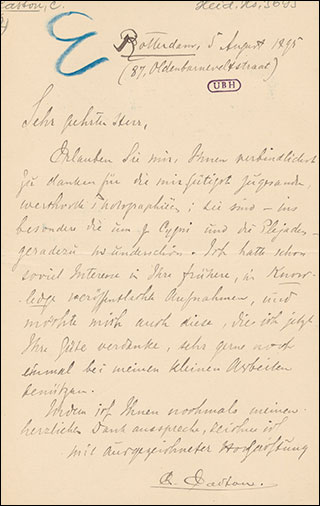 Easton, C.
Heid. Hs. 3695
E
Rotterdam, 5 August 1895
(87, Oldenbarneveltstraat)
UBH
Sehr geehrter Herr,
Erlauben Sie mir, Ihnen verbindlichst
zu danken für die mir gütigst zugesandten
werthvolle Photographien; sie sind – ins
besondere die um γ Cygni und die Plejaden –
geradezu wunderschön. Ich hatte schon
soviel Interesse in Ihre frühere, in Know-
ledge veröffentlichte Aufnahmen, und
möchte mich auch diese, die ich jetzt
Ihre Güte verdanke, sehr gerne noch
einmal bei meinen kleinen Arbeiten
benützen.
Indem ich Ihnen nochmals meinen
herzlichen Dank ausspreche, zeichne ich
mit ausgezeichneter Hochachtung
C. Easton.